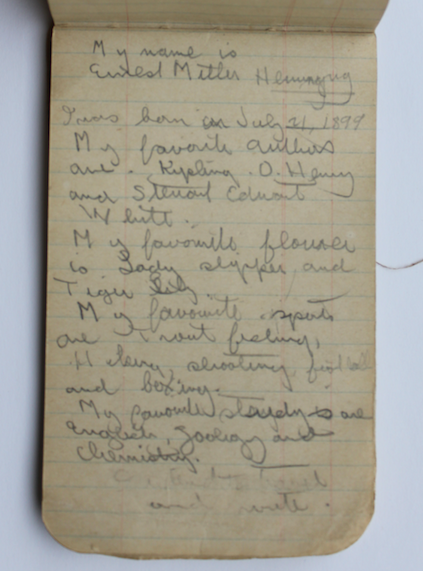 My name is
Ernest Miller Hemingway
I was born on July 21, 1899
My favorite authors
are. Kipling. O. Henry
and Steuart Edward
White.
My favorite flower
is Lady slipper and
Tiger Lily.
My favourite sports
are Trout fishing,
Hiking, shooting, football
and boxing.
My favorite studys are
English, Zoology and
Chemistry.
I intend to travel
and write.